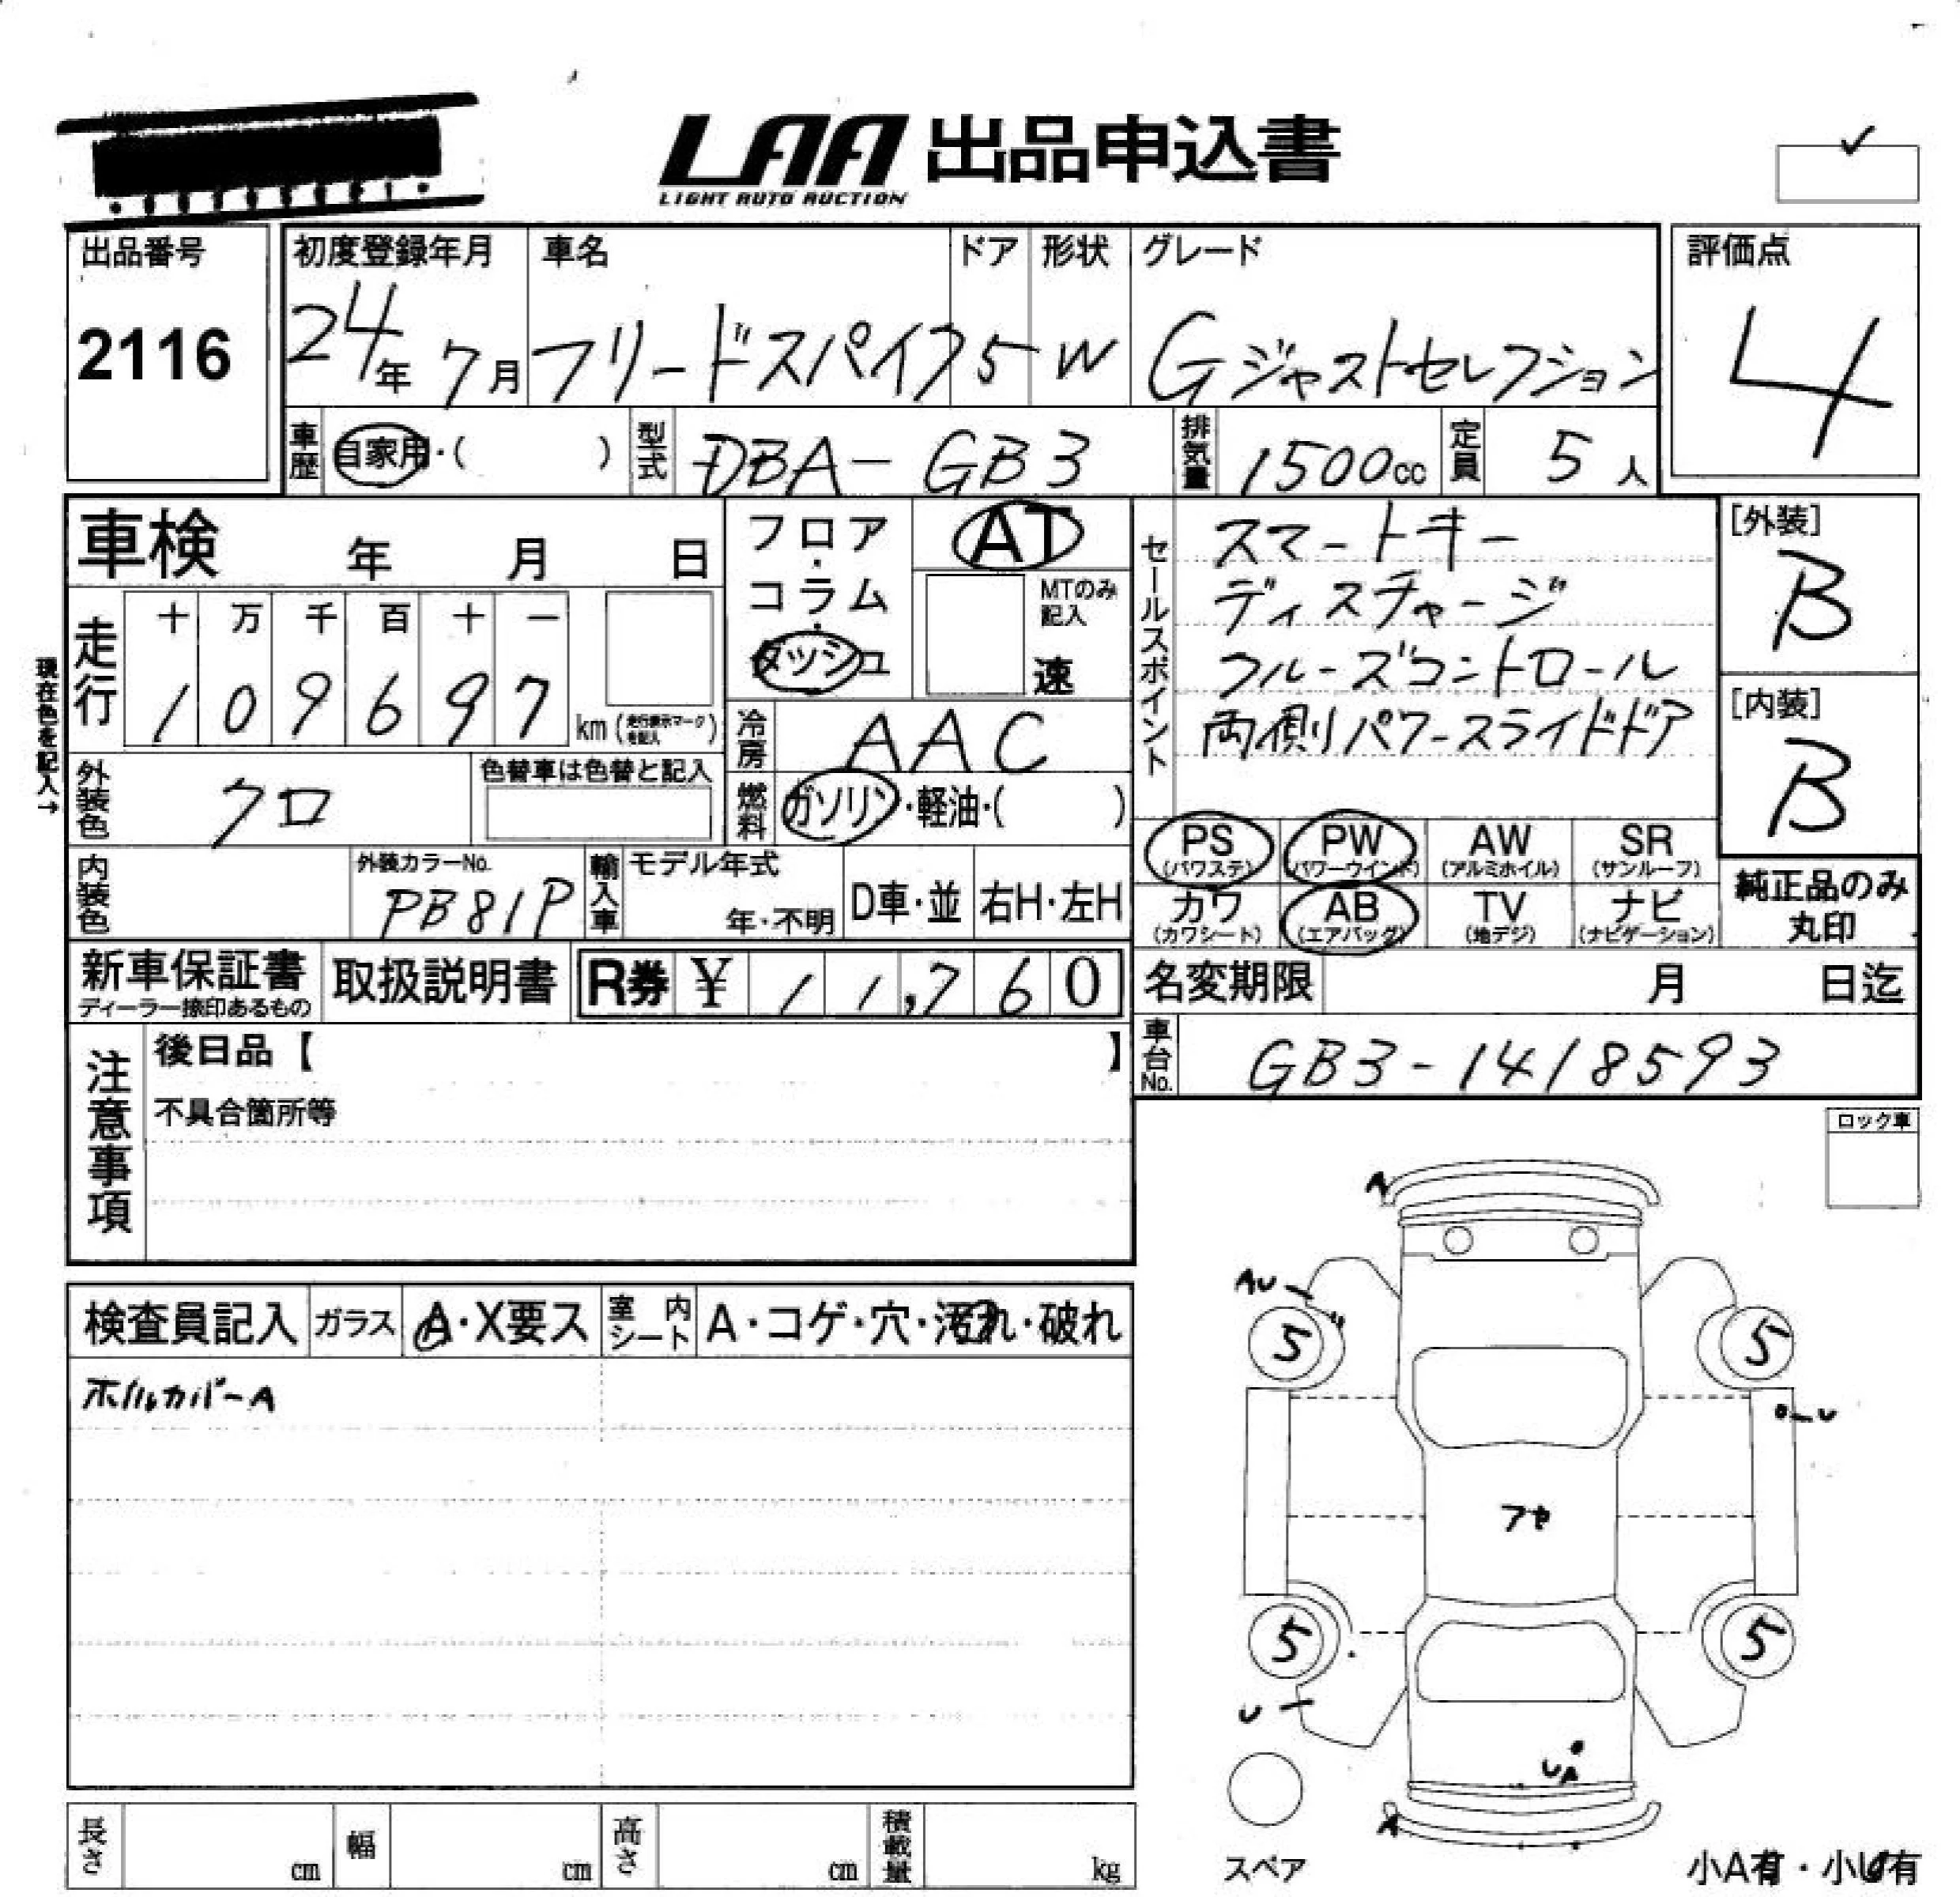 LAA 出品申込書
LIGHT AUTO AUCTION
出品番号
2116
初度登録年月
24年 7月
車名
フリードスパイク
ドア
5
形状
W
グレード
Gジャストセレクション
評価点
4
車歴 自家用・( )
型式 DBA-GB3
排気量 1500cc
定員 5人
車検 年 月 日
フロア・コラム・ダッシュ
AT
MTのみ記入
速
セールスポイント
スマートキー
ディスチャージ
クルーズコントロール
両側パワースライドドア
[外装]
B
[内装]
B
現在色を記入→
走行
十 万 千 百 十 一
1 0 9 6 9 7 km (走行表示マークを記入)
冷房 AAC
燃料 ガソリン・軽油・( )
外装色 クロ
色替車は色替と記入
内装色
外装カラーNo.
PB81P
輸入車
モデル年式
年・不明
D車・並
右H・左H
PS (パワステ)
PW (パワーウインド)
AW (アルミホイル)
SR (サンルーフ)
カワ (カワシート)
AB (エアバッグ)
TV (地デジ)
ナビ (ナビゲーション)
純正品のみ
丸印
新車保証書
ディーラー捺印あるもの
取扱説明書
R券 ¥ 11,760
名変期限 月 日迄
車台No. GB3-1418593
注意事項
後日品【 】
不具合箇所等
ロック車
検査員記入
ガラス A・X要ス
室内シート A・コゲ・穴・汚れ・破れ
ホイルカバーA
A
AU
5
5
U
フセ
5
5
U
UA
A
スペア
小A有・小U有
長さ cm
幅 cm
高さ cm
積載量 kg